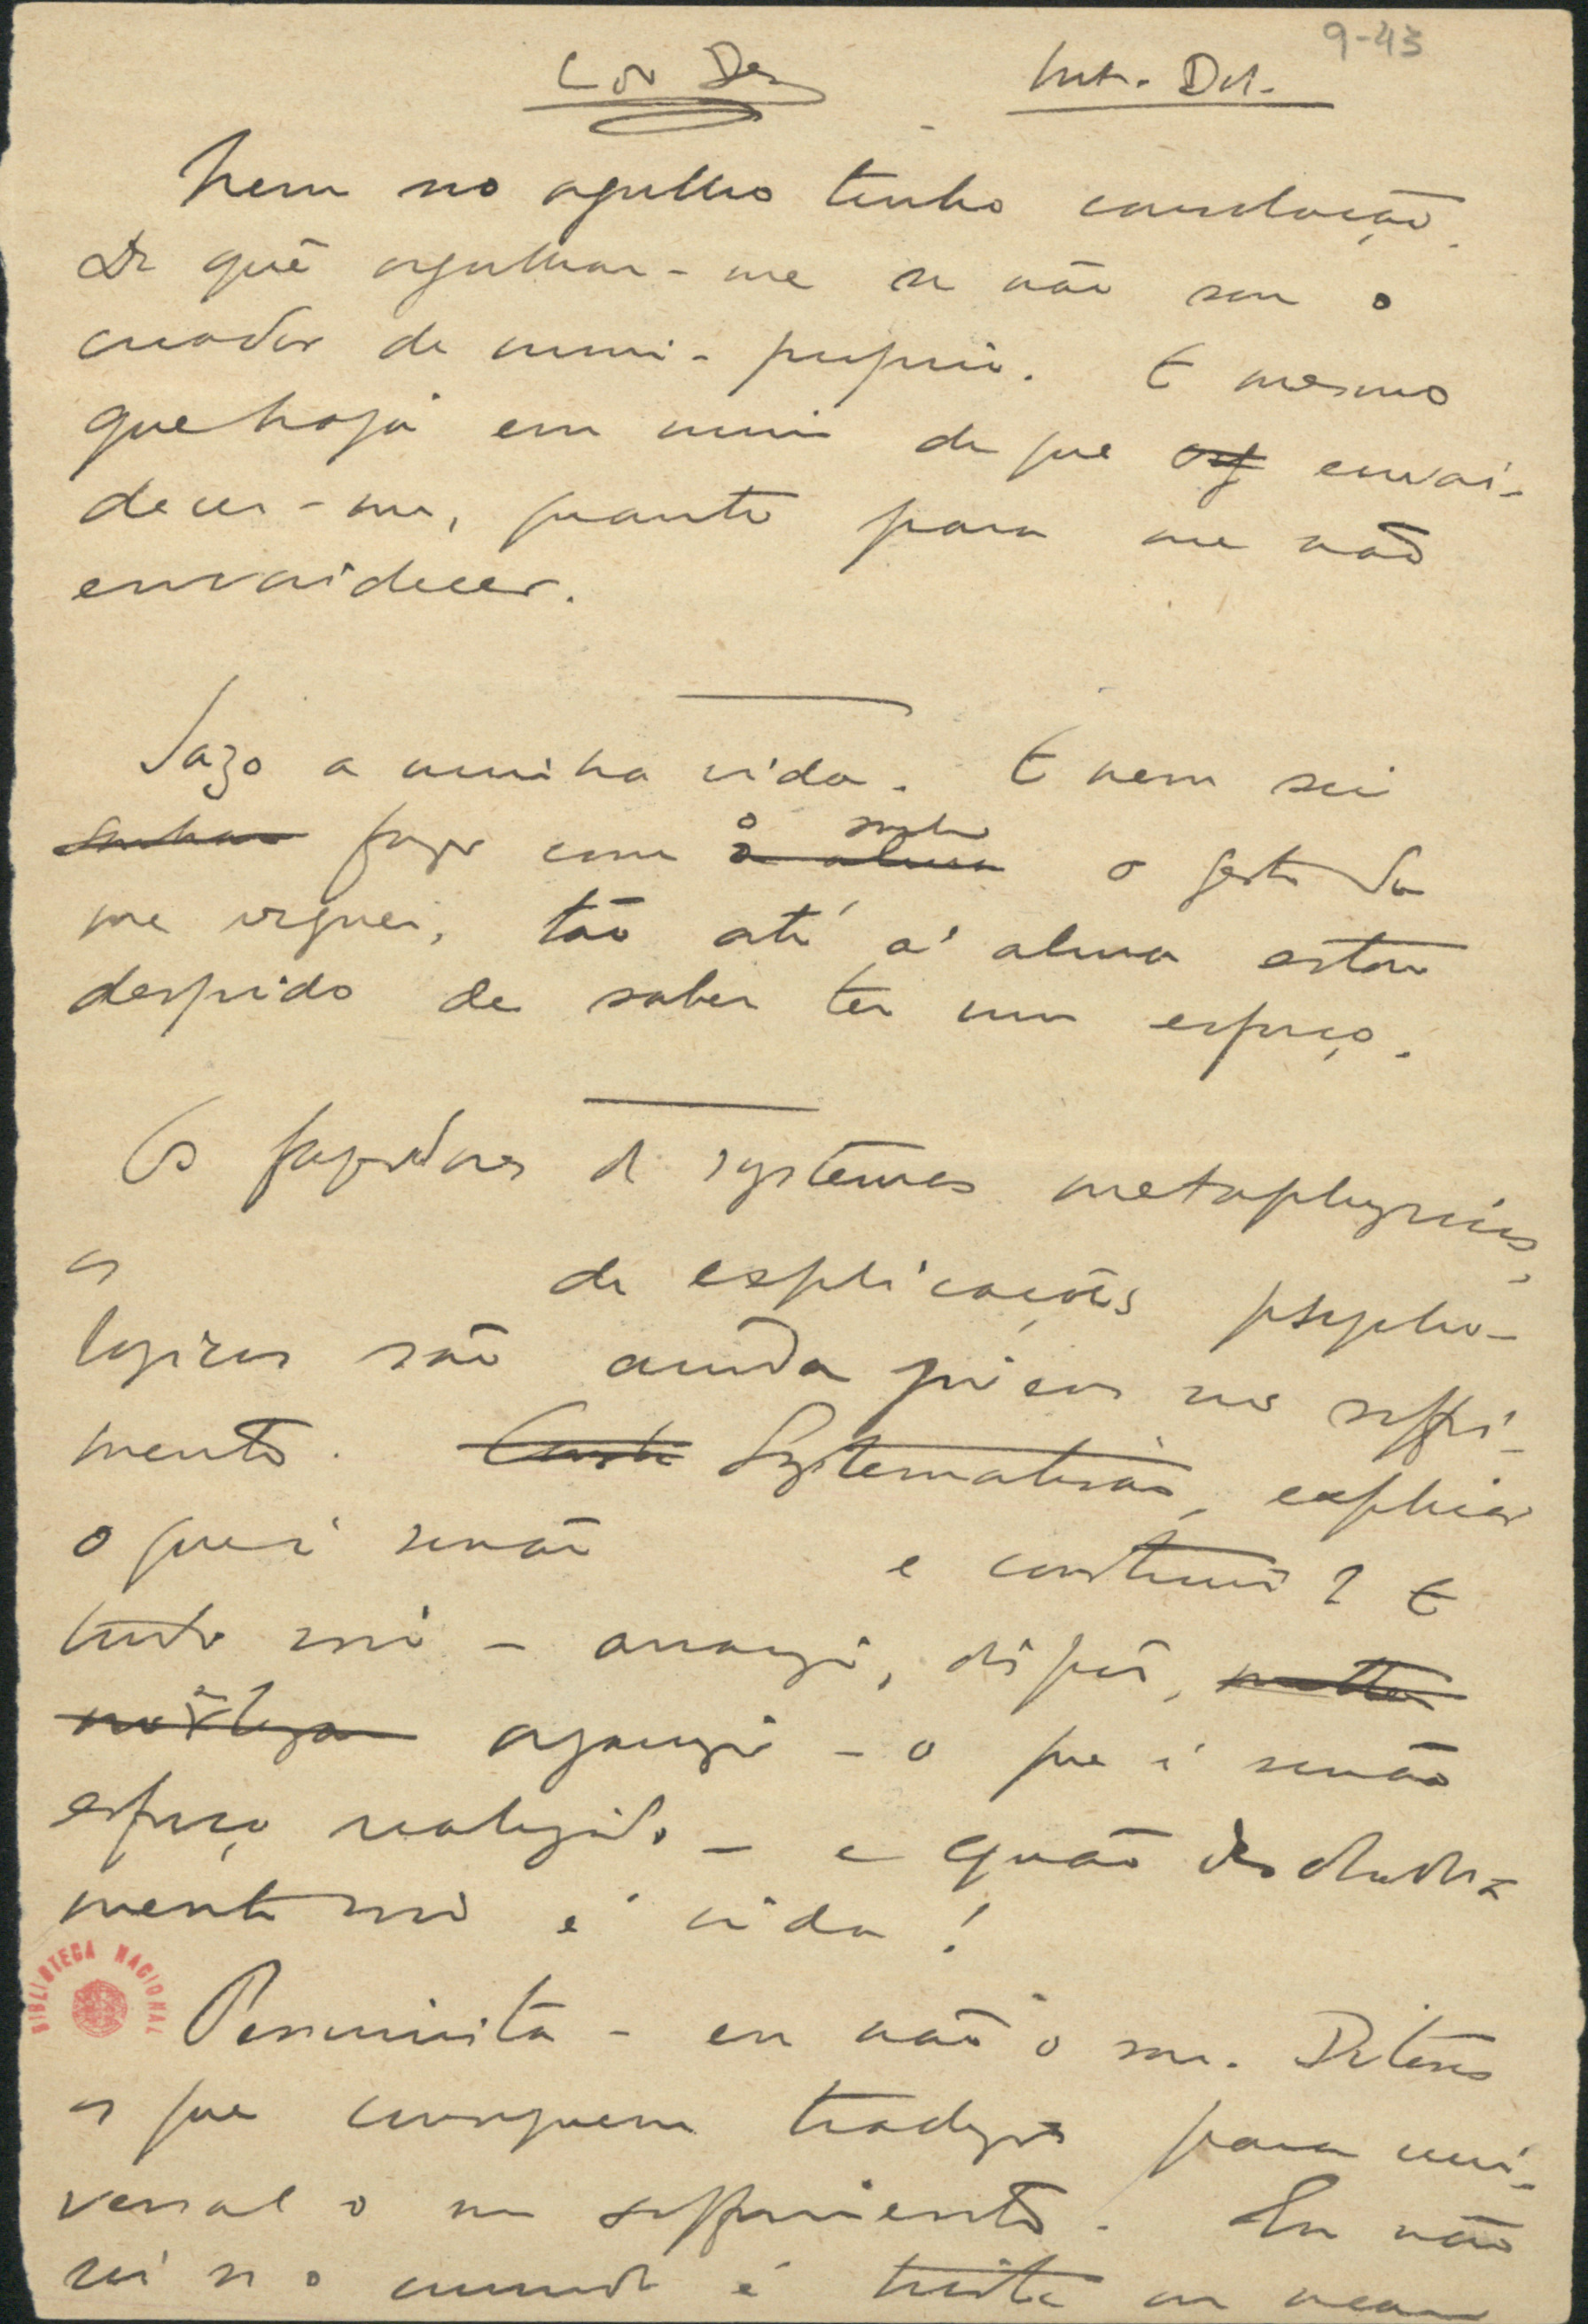 9-43
L do Des
Int. Dol.
Nem no orgulho tenho consolação.
De quê orgulhar-me se não sou o
creador de mim-proprio. E mesmo
que haja em mim de que envai-
decer-me, quanto para me não
envaidecer.
Jazo a minha vida. E nem sei
sonhar fazer com o sonho a alma o gesto de
me erguer, tão até á alma estou
despido de saber ter um esforço.
Os fazedores de systemas metaphysicos,
os de explicações psycho-
logicas são ainda no soffri-
mento. Systematizar, explicar
o que é senão e construir? E
tudo isso – arranjar, dispôr,
organizar – o que é senão
esforço realizado – e quão desoladora-
mente isso é vida!
BIBLIOTECA NACIONAL
Pessimista – eu não o sou. Ditosos
os que conseguem traduzir para uni-
versal o seu soffrimento. Eu não
sei se o mundo é triste ou mau